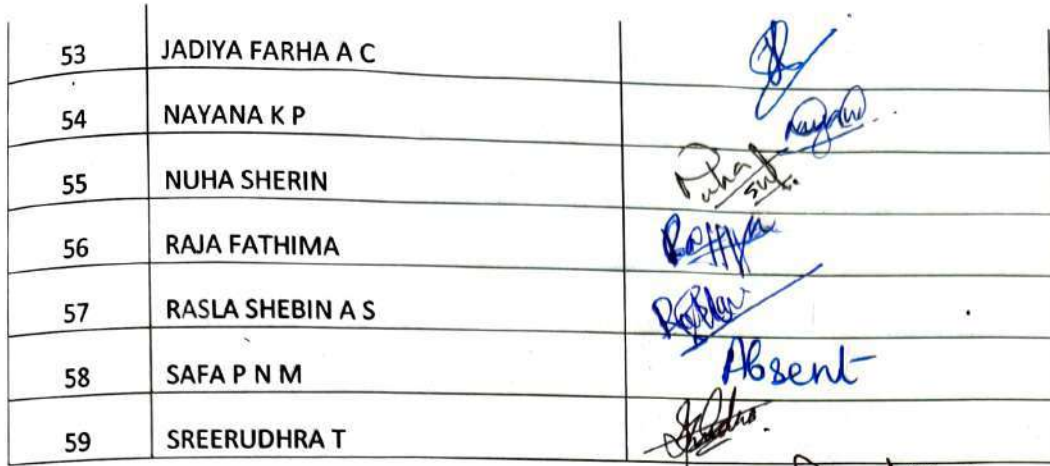 53 JADIYA FARHA A C
54 NAYANA K P Nayana
55 NUHA SHERIN Nuha
56 RAJA FATHIMA
57 RASLA SHEBIN A S
58 SAFA P N M Absent
59 SREERUDHRA T